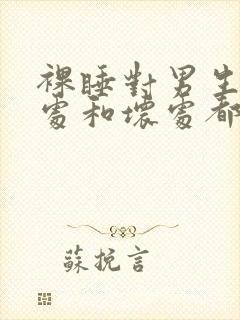 裸睡對男生
處和壞處都
蘇挽言